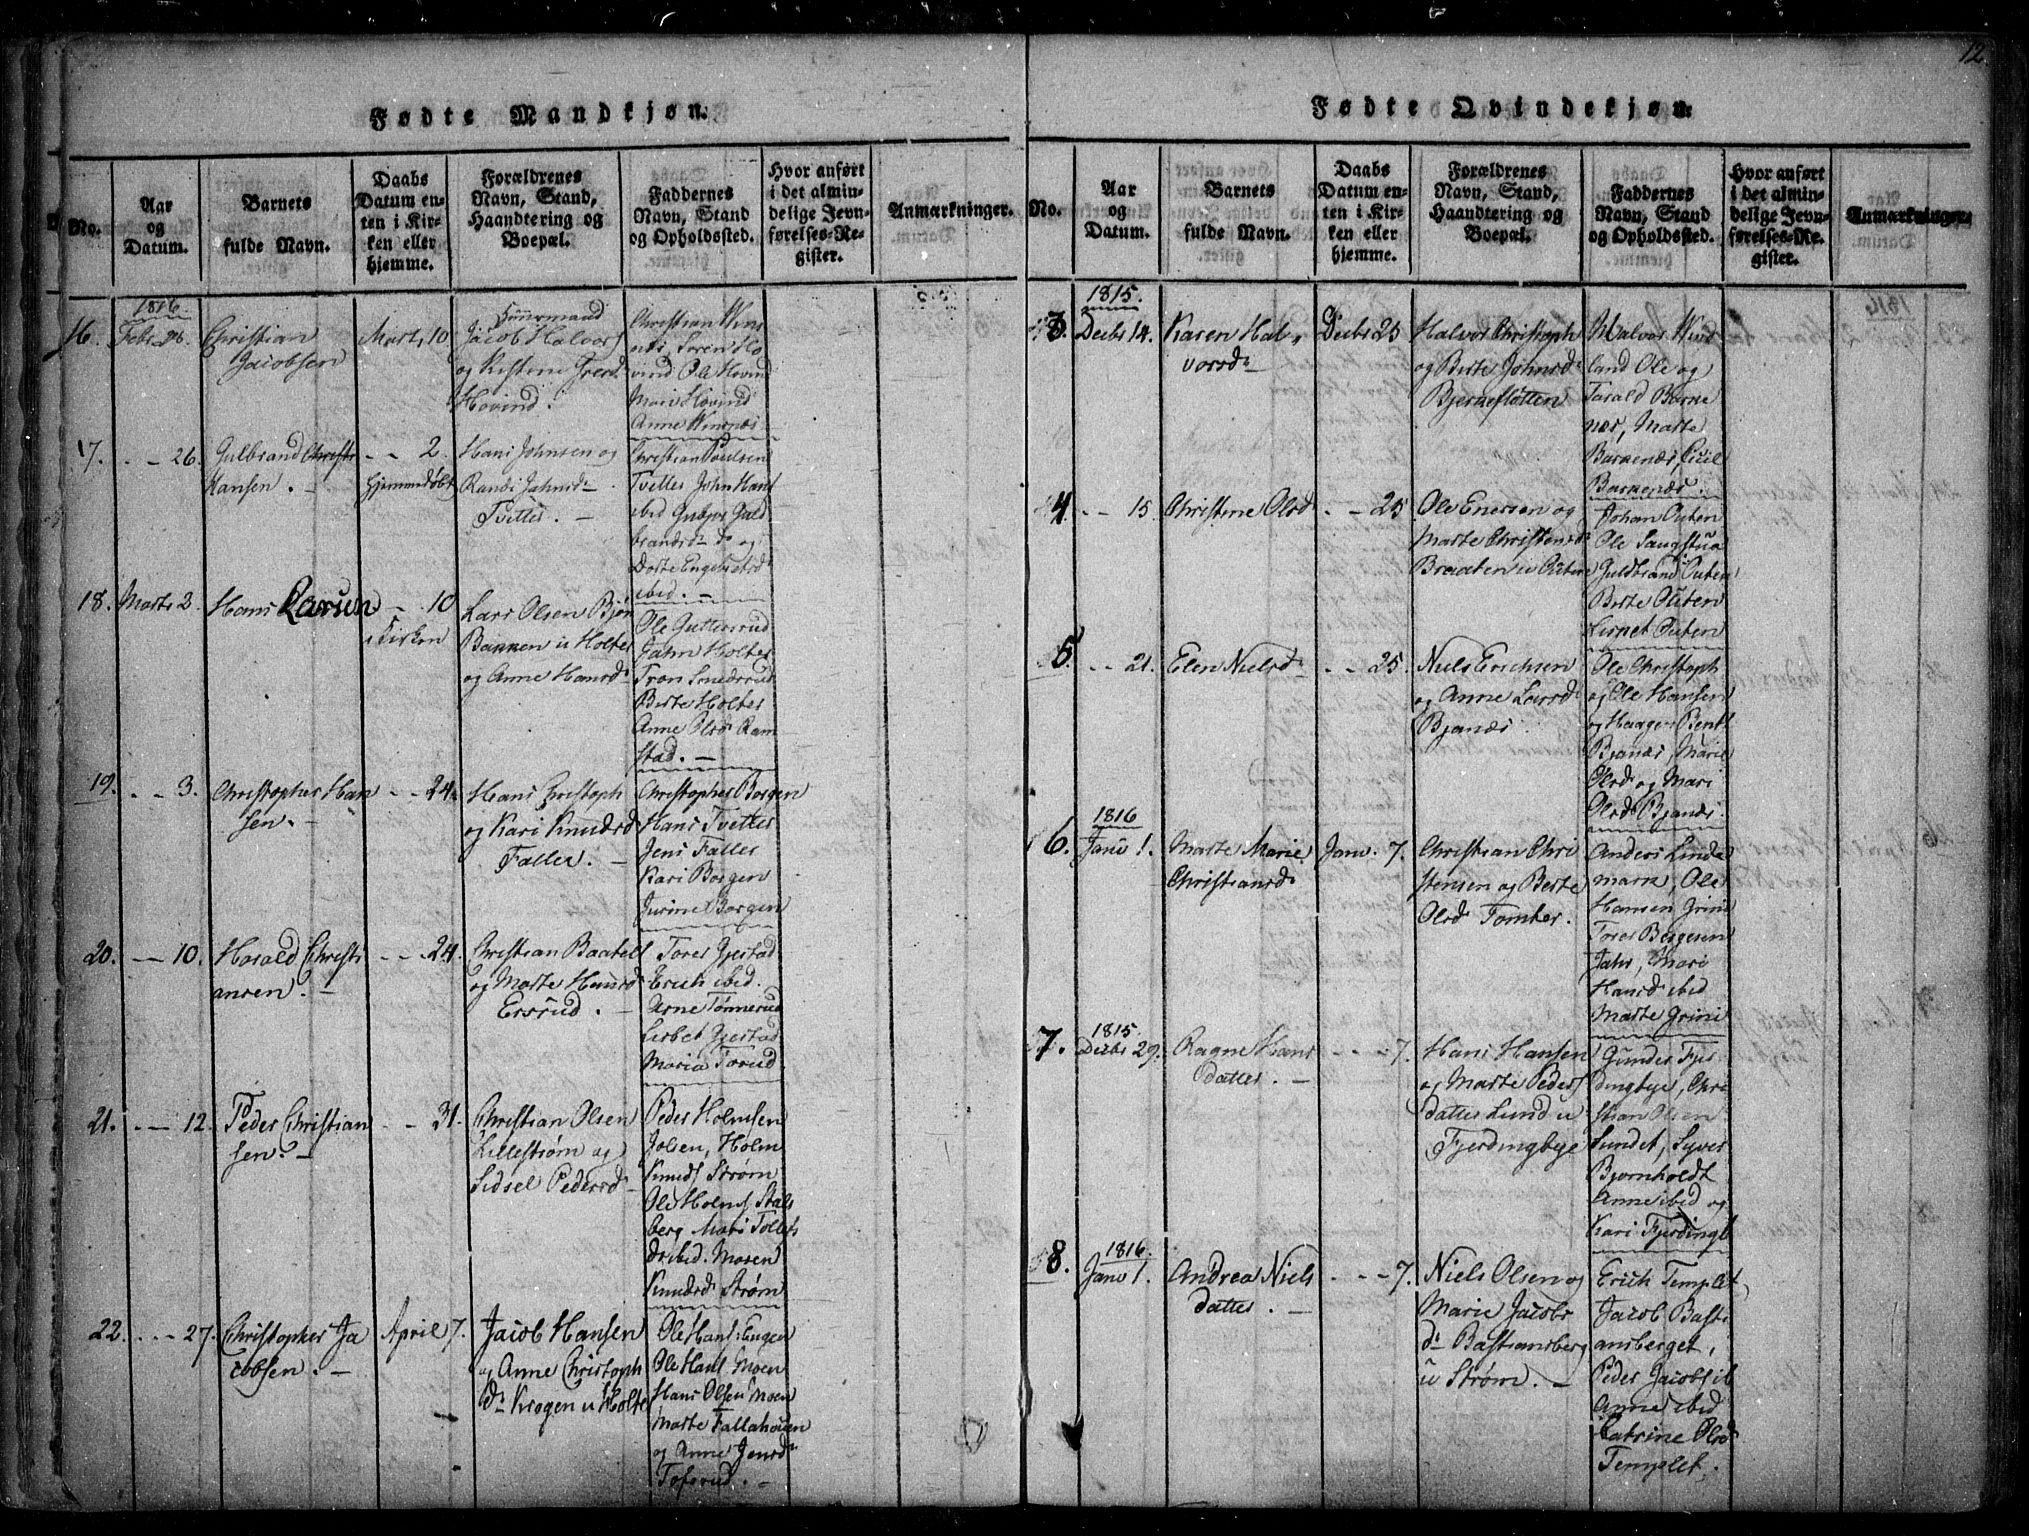 12
Fødte Mandkjøn.
No.
Aar
og
Datum.
Barnets
fulde Navn.
Daabs
Datum en-
ten i Kir-
ken eller
hjemme.
Forældrenes
Navn, Stand,
Haandtering og
Boepæl.
Faddernes
Navn, Stand
og Opholdssted.
Hvor anført
i det almin-
delige Jevn-
førelses-Re-
gister.
Anmærkninger.
16.
1816.
Febr. 26.
Christian
Jacobsen
Mart. 10
Huusmand
Jacob Halvors
og Kistene
Hovind.
Christian
Søren Ho
vind Ole Hovind
Mari Hovind
Anne
17.
- - 26.
Gulbrand Christi
Hansen. -
- - 2.
Hjemmedøbt
Hans Johnsen og
Randi Jahnsd
Tvetter. -
Christian Poulsen
Tvetter John Hans
ibid Guld
brandsd do og
Dorte Engebretsd
ibid. -
18.
Marts 2.
Hans Larsen
- 10
i Kirken
Lars Olsen Bjør
Bakken u Holter
og Anne Hansd
Ole Gutterrud
Jahn Holter
Tron Smedsrud
Berte Holter
Anne Olsd Ram
stad. -
19.
- - 3.
Christopher Han
sen. -
- - 24.
Hans Christoph
og Kari Knudsd
Faller. -
Christopher Borgen
Hans Tvetter
Jens Faller
Kari Borgen
Jurine Borgen
20.
- - 10.
Harald Christi
ansen. -
- - 24.
Christian Baatels
og Marte Hansd
Ersrud. -
Tores Gjestad
Erich ibid.
Arne Tønnerud
Lisbet Gjestad
Maria Torud
21.
- - 12.
Peder Christian
sen. -
- - 31.
Christian Olsen
Lillestrøm og
Sidsel Pedersd
Peder Holmsen
Jolsen, Holm
Knuds Strøm
Ole Holms Stals
berg Mari Tollefs
dr ibid. Maren
Knudsd Strøm
22.
- - 27.
Christopher Ja
cobsen. -
April 7.
Jacob Hansen
og Anne Christoph
dr Krogen u Holte
Ole Hans: Engen
Ole Hans Moen
Hans Olsen Moen
Marte Fallahagen
og Anne Jensd
Toferud. -
Fødte Qvindekjøn.
No.
Aar
og
Datum.
Barnets
fulde Navn.
Daabs
Datum en-
ten i Kir-
ken eller
hjemme.
Forældrenes
Navn, Stand,
Haandtering og
Boepæl.
Faddernes
Navn, Stand
og Opholdssted.
Hvor anført
i det almin-
delige Jevn-
førelses-Re-
gister.
Anmærkninger.
3.
1815.
Decbr 14.
Karen Hal
vorsd
Decbr 25
Halvor Christoph
og Berte Johnsd
Bjerkesløtten
Halvor
land Ole og
Tarald Barke
næs, Marte
Barkenæs, Cicil
Barkenæs.
4.
- - 15.
Christine Olsd
- - 25
Ole Enersen og
Marte Christensd
Braaten u Outen
Johan Outen
Ole Saugstua
Guldbrand Outen
Berte Outen
Lisbet Outen
5.
- - 21.
Elen Nielsd
- - 25.
Niels Erichsen
og Anne Larsd
Bjanæs
Ole Christoph
og Ole Hansen
og Haagen Bents
Bjanæs Marie
Olsd og Mari
Olsd Bjanæs.
6.
1816
Janu 1.
Marte Marie
Christiansd
Janu. 7.
Christian Chri
stensen og Berte
Olsd Tomter.
Anders Linde
mark, Ole
Hansen Grini
Tores Bergesen
Jahr, Mari
Hansd ibid
Marte Grini
7.
1815.
Decbr 29.
Ragne Hans
datter. -
- - 7.
Hans Hansen
og Marte Peders
datter Lund u
Fjerdingbye
Gunder Fjer
dingbye, Chri
stian Olsen
Sundet, Syver
Bjornholdt
Anne ibid og
Kari Fjerdingb
8.
1816.
Janu 1.
Andrea Niels
datter. -
- - 7.
Niels Olsen og
Marie Jacobs
dr Bastiansberg
u Strøm. -
Erich Templet
Jacob Basti
ansberget,
Peder Jacobs ib
Anne ibid
Catrine Olsd
Templet.